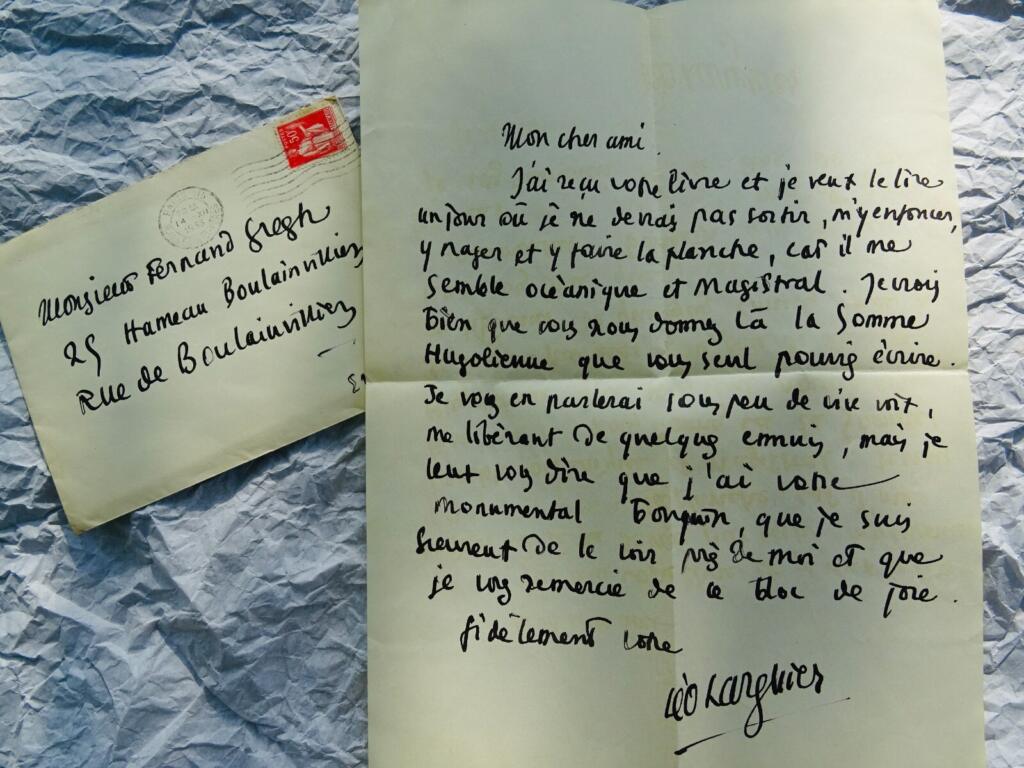 Monsieur Fernand Gregh
25 Hameau Boulainvilliers
Rue de Boulainvilliers
50c
Mon cher ami.
J'ai reçu votre livre et je veux le lire
un jour où je ne devrai pas sortir, m'y enfoncer,
y nager et y faire la planche, car il me
semble océanique et magistral. Je crois
bien que vous nous donnez là la Somme
Hugolienne que vous seul pouviez écrire.
Je vous en parlerai sous peu de vive voix,
me libérant de quelques ennuis, mais je
veux vous dire que j'ai votre
monumental bouquin, que je suis
heureux de le voir près de moi et que
je vous remercie de ce bloc de joie.
fidèlement votre
Léo Larguier